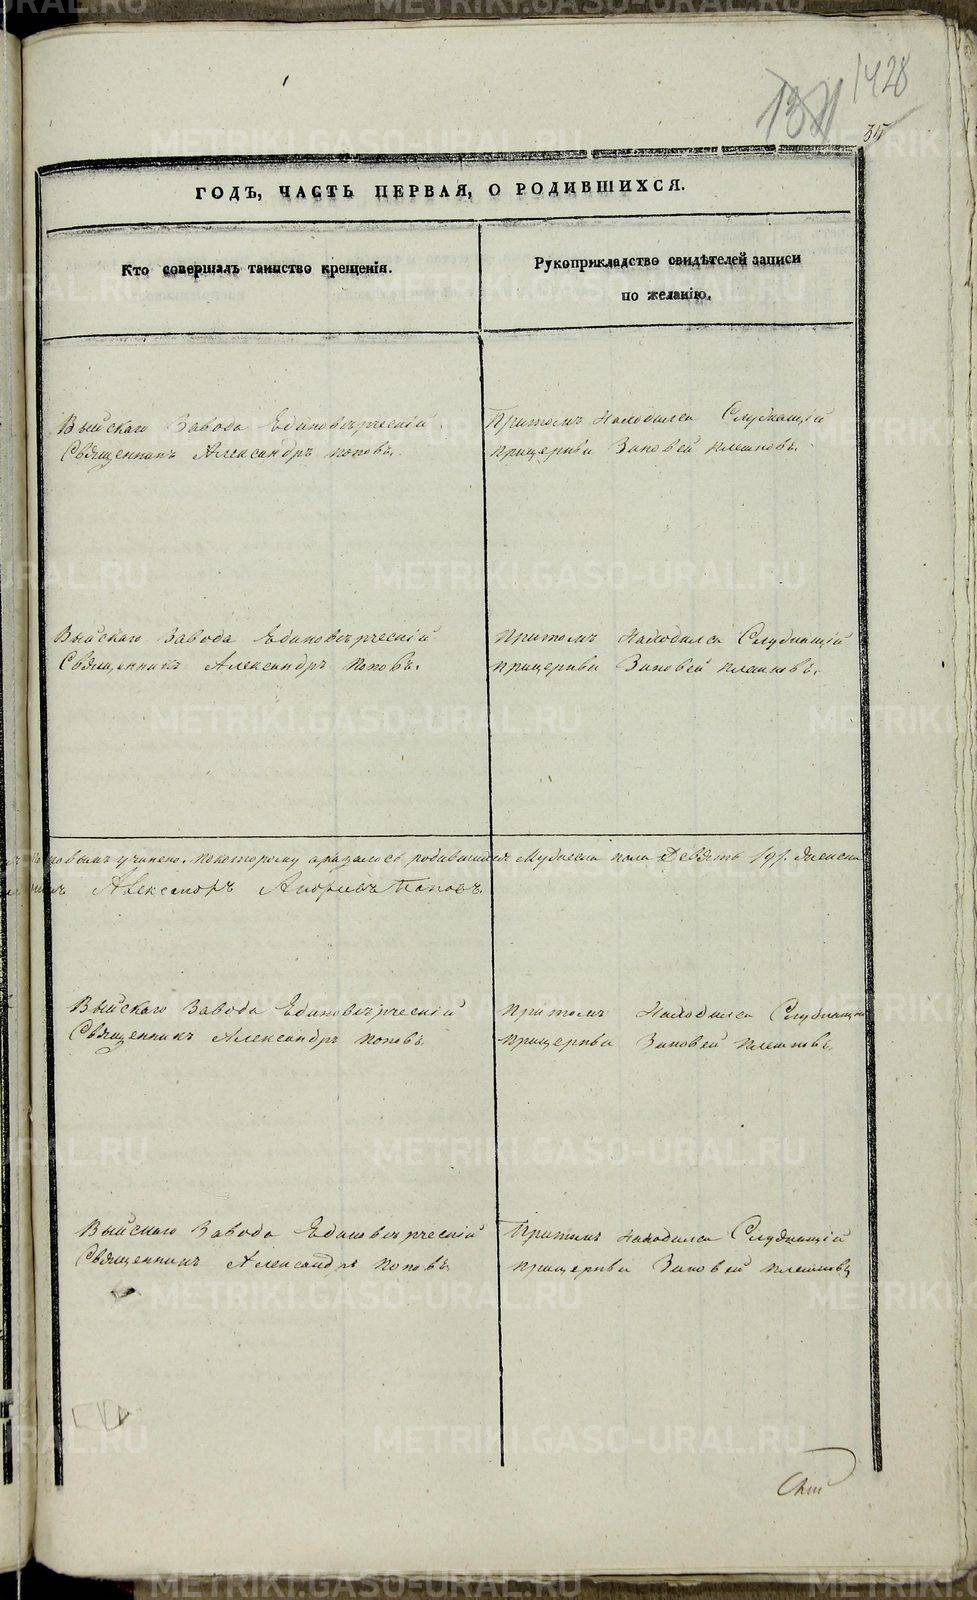 1428
131
35
ГОДЪ, ЧАСТЬ ПЕРВАЯ, О РОДИВШИХСЯ.
Кто совершалъ таинство крещенія.
Рукоприкладство свидѣтелей записи
по желанію.
Выйскаго Завода Единовѣрческій
Священникъ Александръ Поповъ.
Притомъ Находился Служащій
прицеркви Зиновей Плешковъ.
Выйскаго Завода Единовѣрческій
Священникъ Александръ Поповъ.
Притомъ Находился Служащій
прицеркви Зиновей Плешковъ.
учинено. покоторому оказалось родившихся Мужеска пола Девять /9/. Женска
Александръ Андреевъ Поповъ.
Выйскаго Завода Единовѣрческій
Священникъ Александръ Поповъ.
Притомъ Находился Служащій
прицеркви Зиновей Плешковъ.
Выйскаго Завода Единовѣрческій
Священникъ Александръ Поповъ
Притомъ находился Служащій
прицеркви Зиновей Плешковъ
METRIKI.GASO-URAL.RU